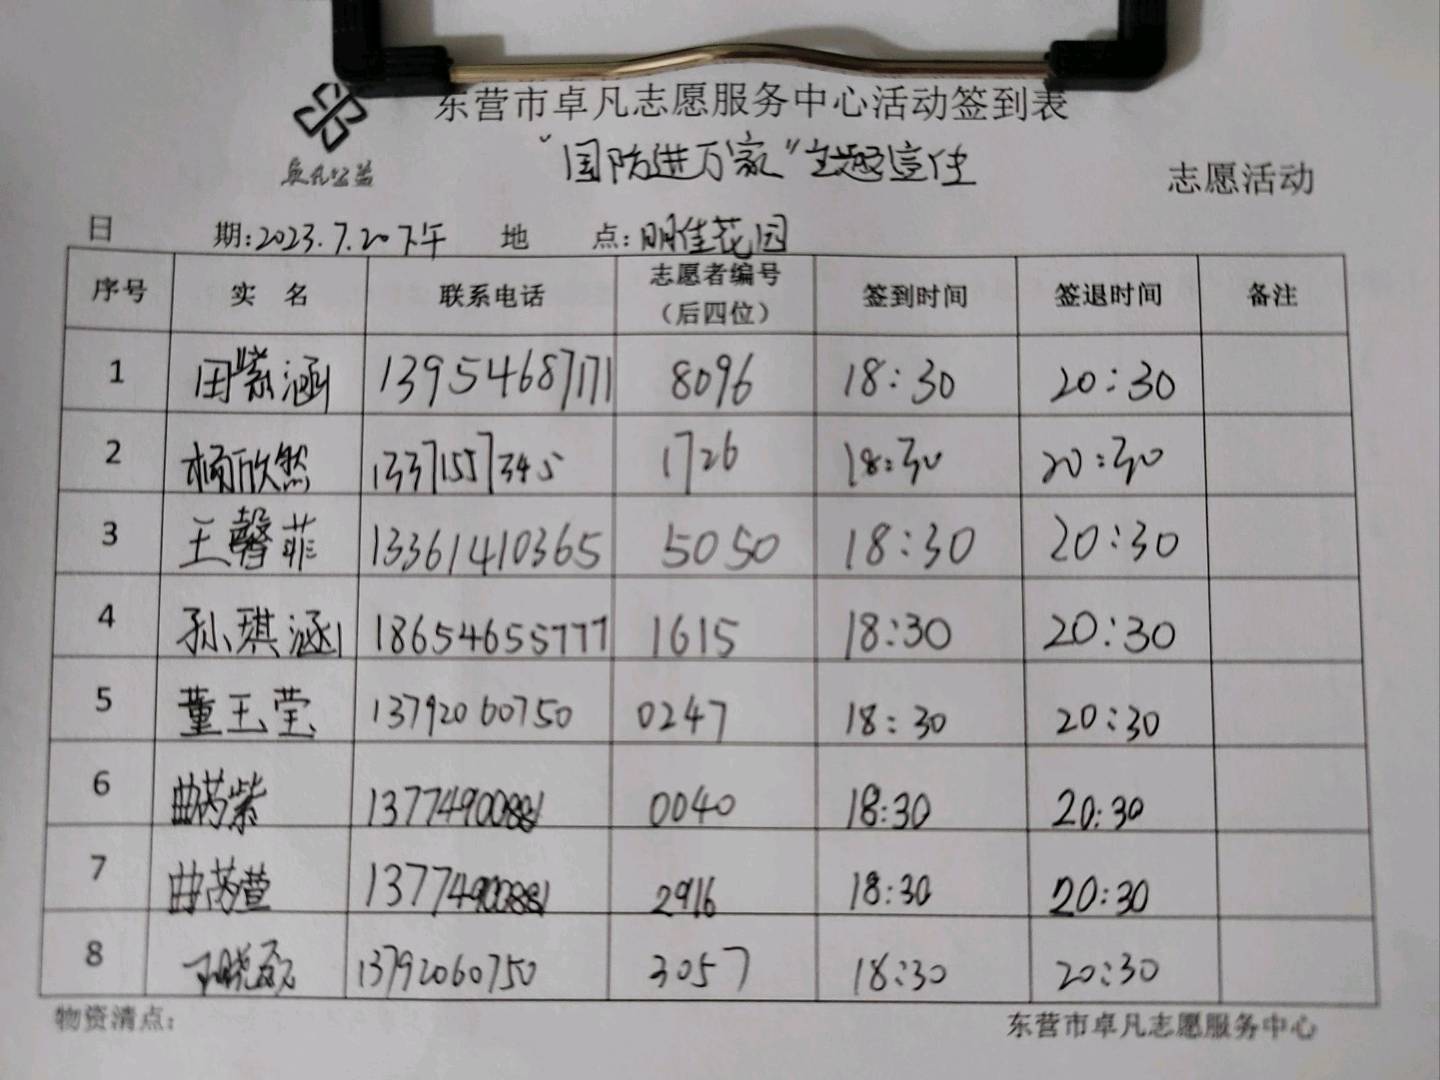 东营市卓凡志愿服务中心活动签到表
卓凡公益
“国防进万家”主题宣传 志愿活动
日 期:2023.7.20下午 地 点:明佳花园
序号 实 名 联系电话 志愿者编号（后四位） 签到时间 签退时间 备注
1 田紫涵 13954687171 8096 18:30 20:30
2 杨欣然 13371557345 1726 18:30 20:30
3 王馨菲 13361410365 5050 18:30 20:30
4 孙琪涵 18654655777 1615 18:30 20:30
5 董玉莹 13792060750 0247 18:30 20:30
6 曲芮紫 13774900881 0040 18:30 20:30
7 曲芮萱 13774900881 2916 18:30 20:30
8 13792060750 3057 18:30 20:30
物资清点： 东营市卓凡志愿服务中心